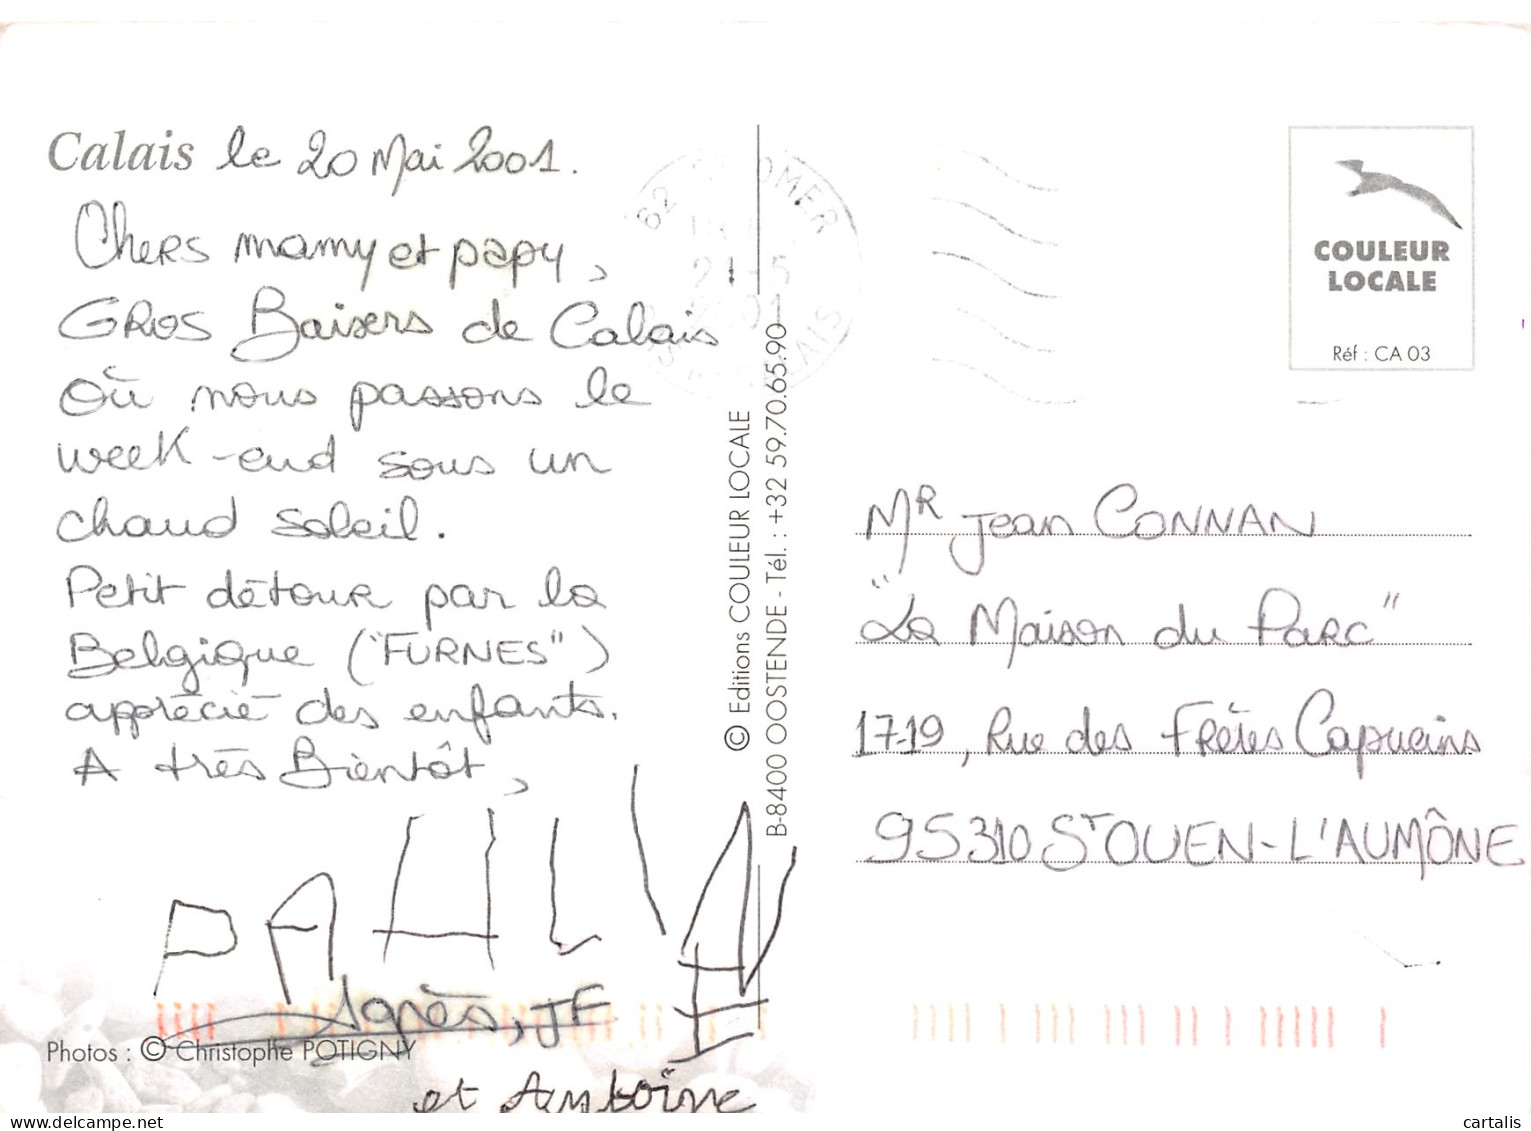 Calais le 20 Mai 2001.
Chers mamy et papy,
GROS Baisers de Calais
Où nous passons le
week-end sous un
chaud soleil.
Petit détour par la
Belgique ("FURNES")
apprécié des enfants.
A très Bientôt,
Agnès, JF
et Antoine
Photos : © Christophe POTIGNY
© Editions COULEUR LOCALE
B-8400 OOSTENDE - Tél. : +32 59.70.65.90
62 OMER
21-5
COULEUR
LOCALE
Réf : CA 03
Mr Jean CONNAN
"La Maison du Parc"
17-19, Rue des Frères Capucins
95310 St OUEN-L'AUMÔNE
cartalis